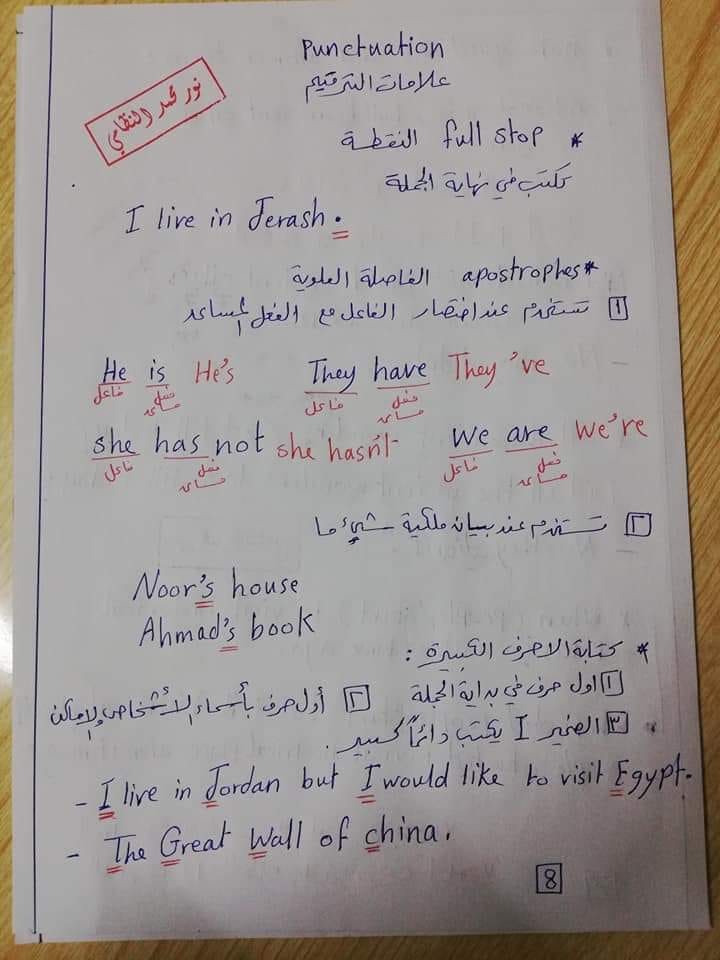 Punctuation
علامات الترقيم
نور محمد النظامي
* full stop النقطة
تكتب في نهاية الجملة
I live in Jerash.
* apostrophes الفاصلة العلوية
١ تستخدم عند اختصار الفاعل مع الفعل المساعد
He is He's They have They 've
فاعل فعل مساعد فاعل فعل مساعد
she has not she hasn't we are we're
فاعل فعل مساعد فاعل فعل مساعد
٢ تستخدم عند بيان ملكية شيء ما
Noor's house
Ahmad's book
* كتابة الاحرف الكبيرة :
١ اول حرف في بداية الجملة ٢ أول حرف بأسماء الأشخاص والاماكن
٣ الضمير I يكتب دائماً كبير .
- I live in Jordan but I would like to visit Egypt.
- The Great Wall of china.
8